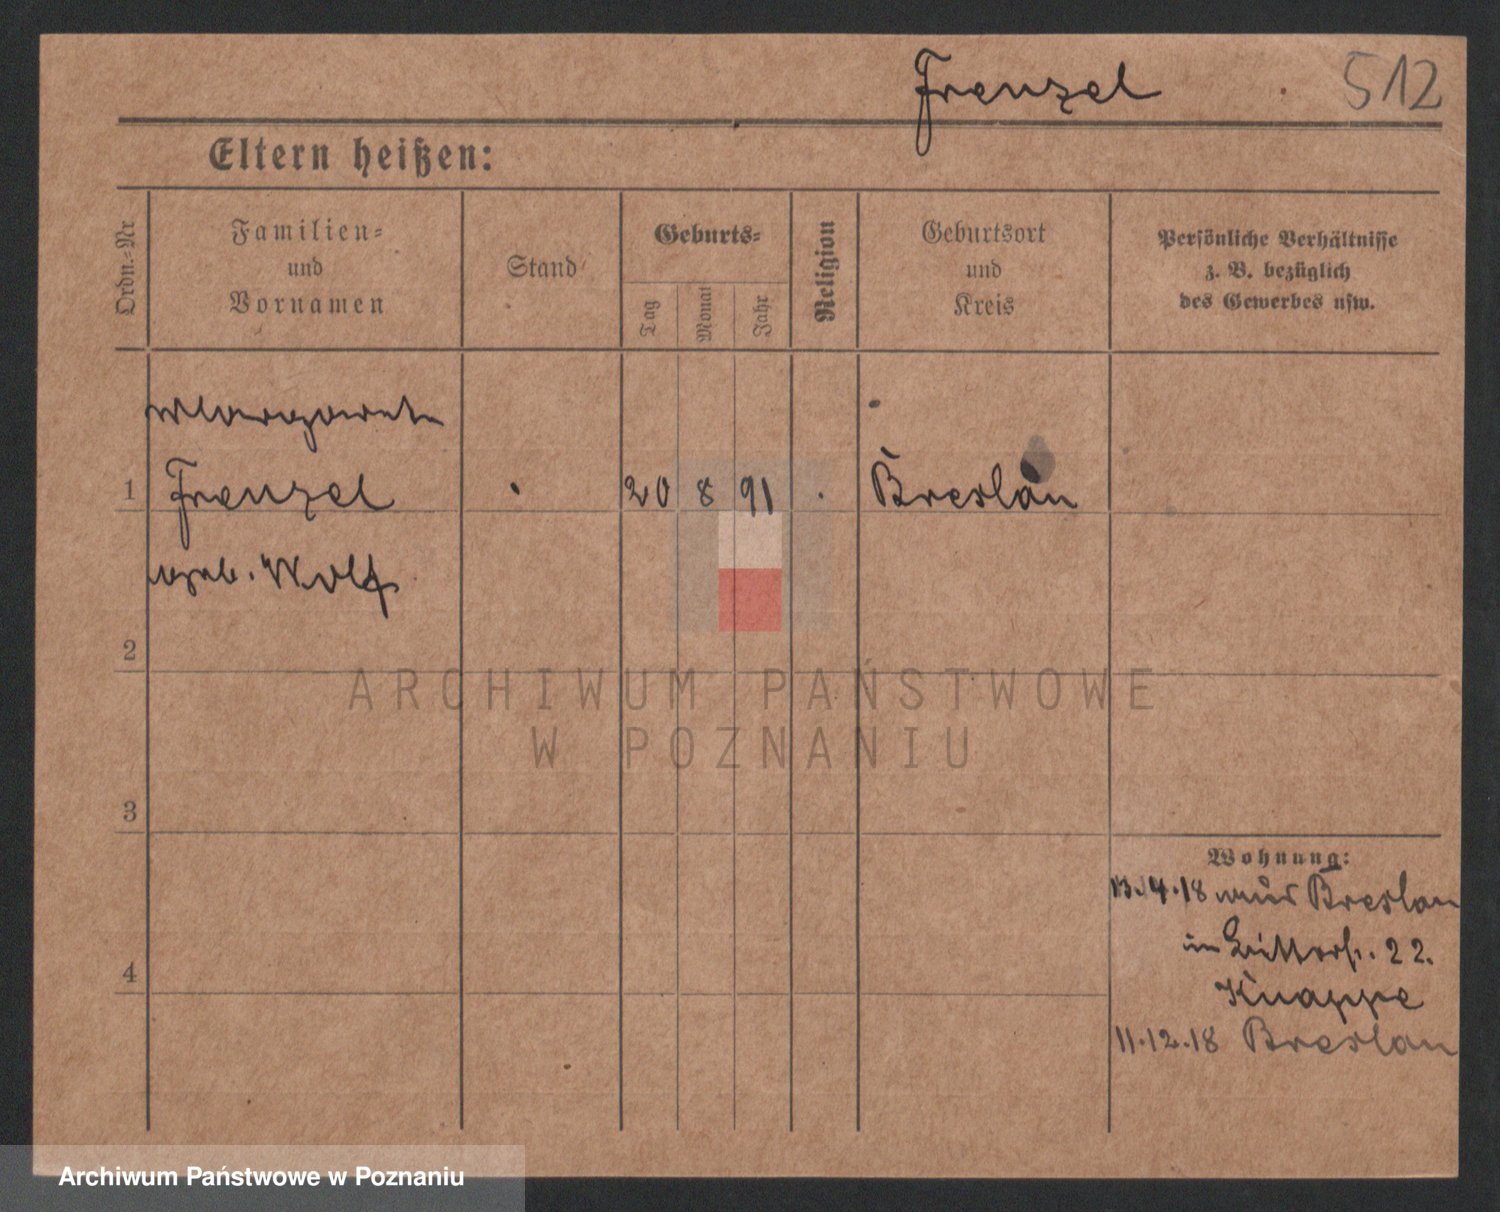 Frenzel 512
Eltern heißen:
Ordn.-Nr.
Familien-
und
Vornamen
Stand
Geburts-
Tag
Monat
Jahr
Religion
Geburtsort
und
Kreis
Persönliche Verhältnisse
z. B. bezüglich
des Gewerbes usw.
Margarete
1 Frenzel 20 8 91 Breslau
geb. Wolf
2
ARCHIWUM PAŃSTWOWE
W POZNANIU
3
Wohnung:
13.4.18 aus Breslau
in 22.
Knappe
4
11.12.18 Breslau
Archiwum Państwowe w Poznaniu